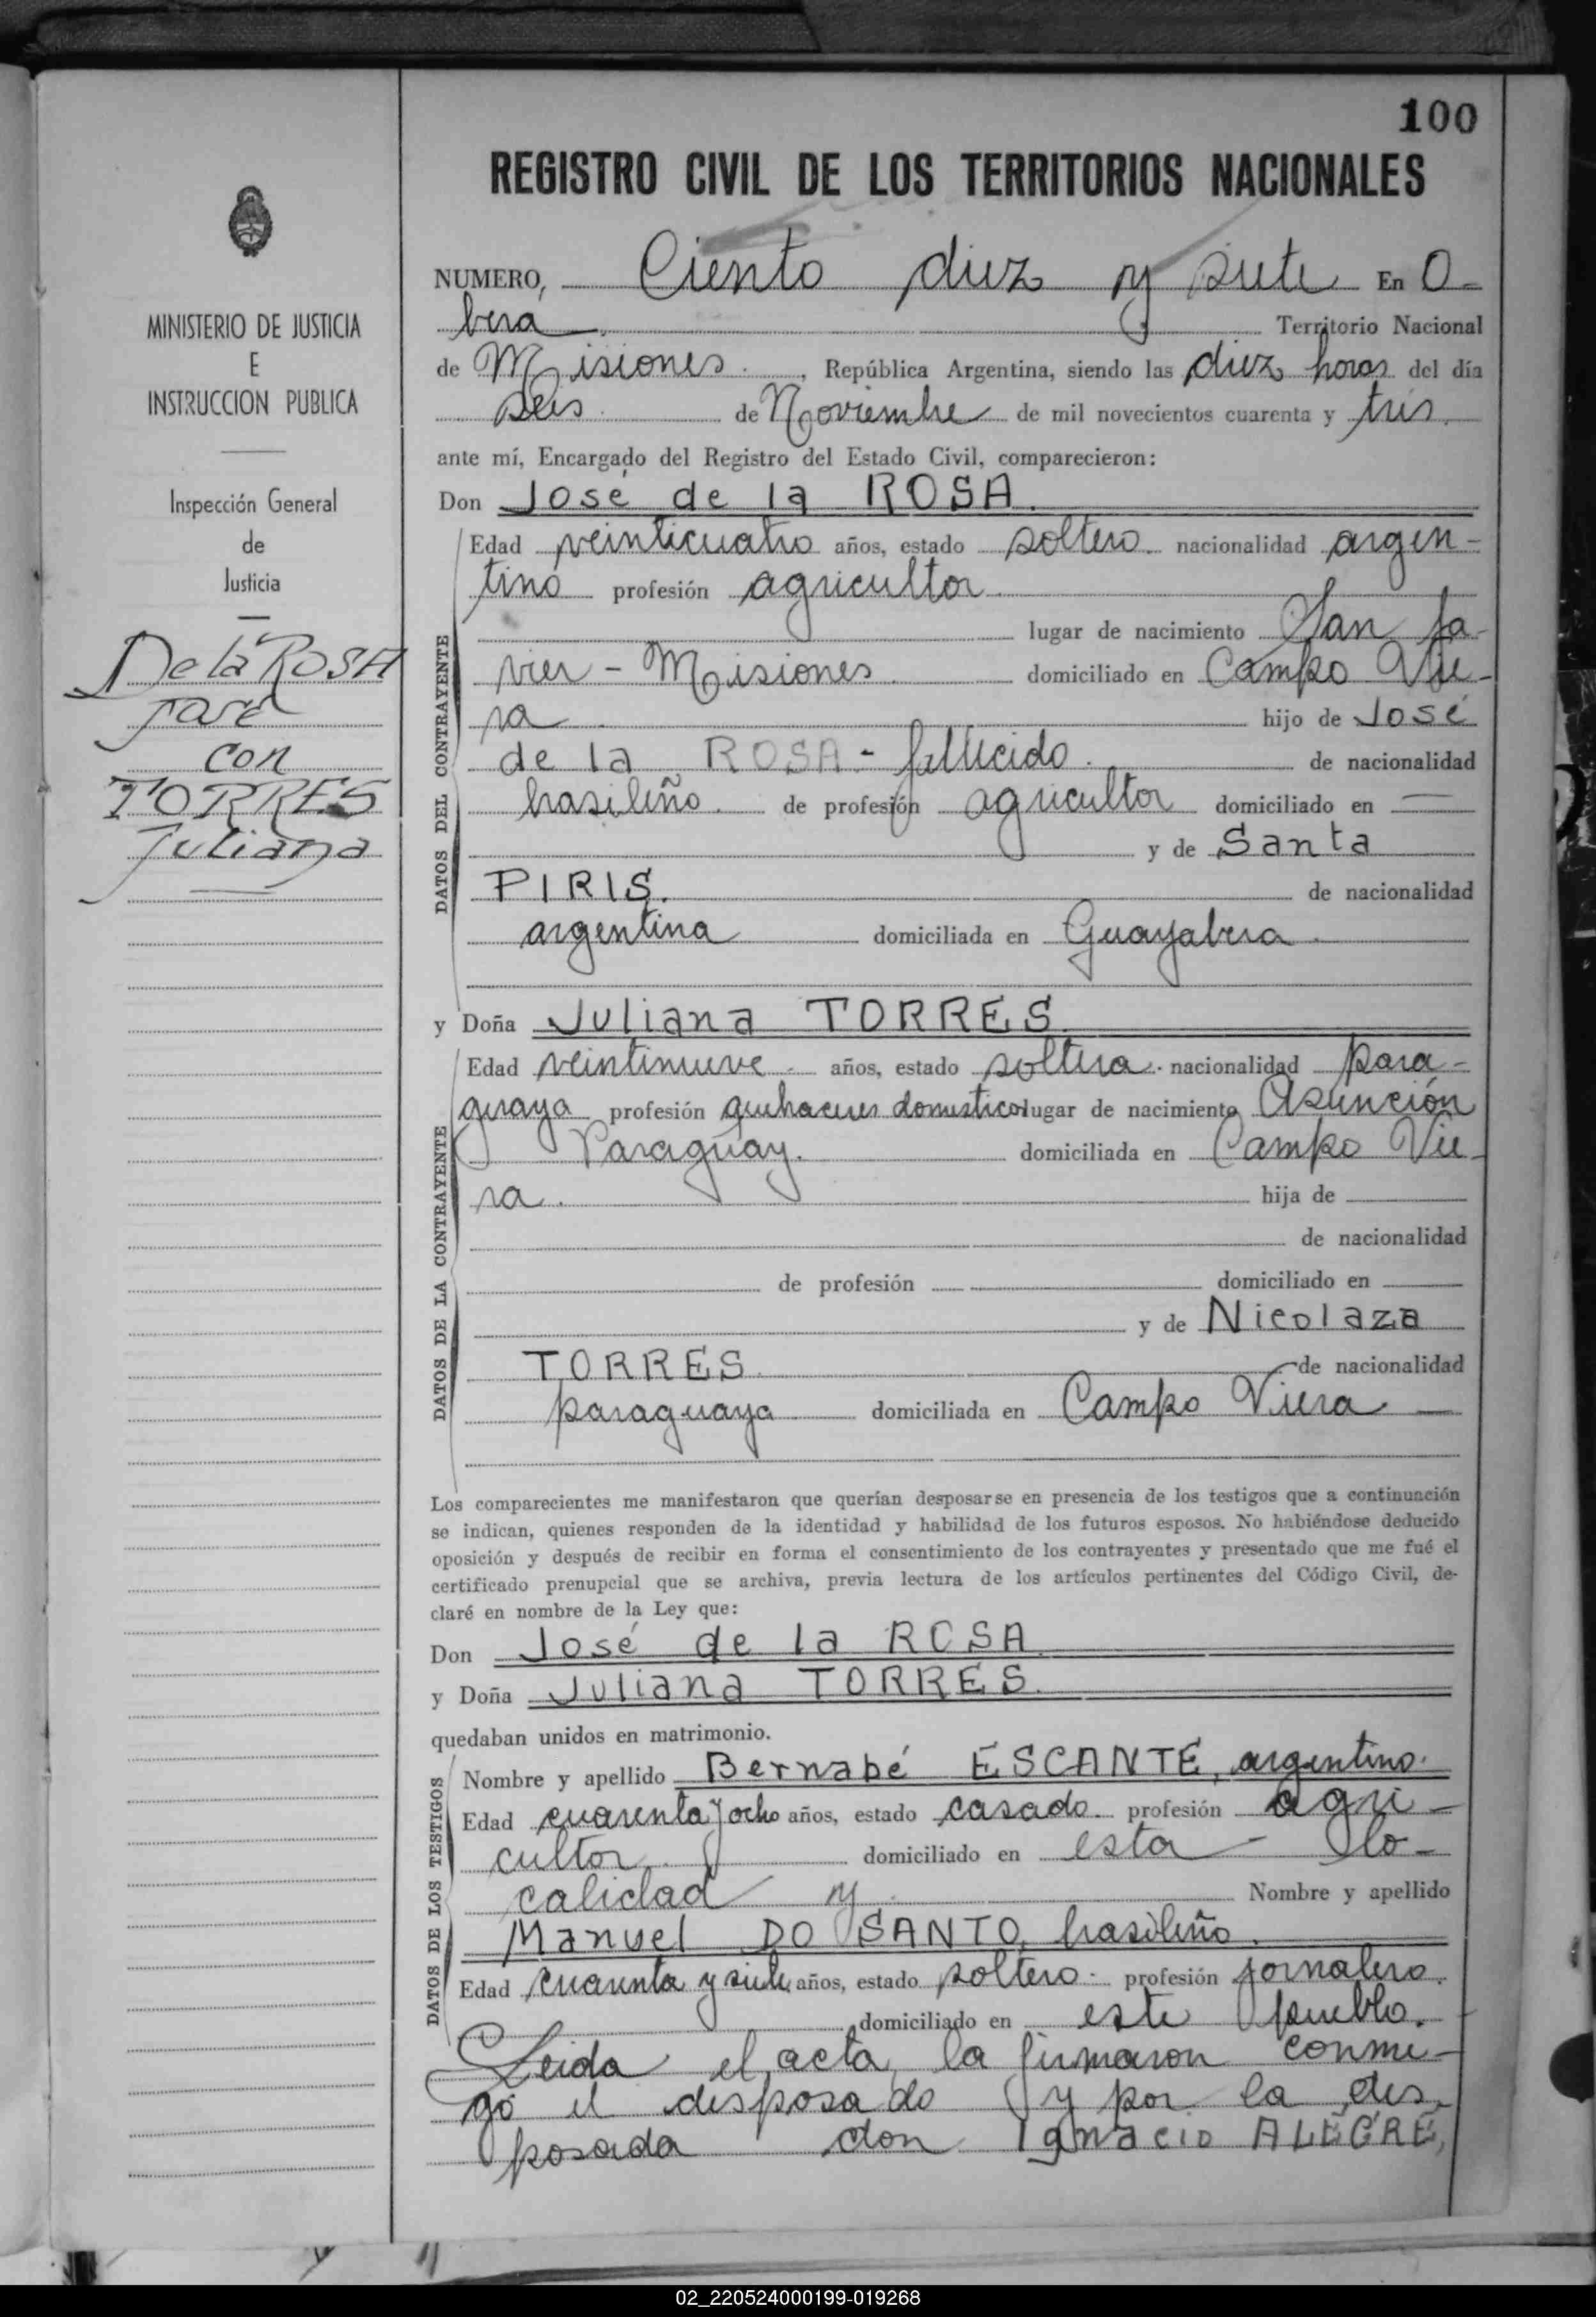 100
REGISTRO CIVIL DE LOS TERRITORIOS NACIONALES
MINISTERIO DE JUSTICIA
E
INSTRUCCION PUBLICA
Inspección General
de
Justicia
De la ROSA
José
con
TORRES
Juliana
NUMERO, Ciento diez y siete En O-
bera Territorio Nacional
de Misiones. , República Argentina, siendo las diez horas del día
seis de Noviembre de mil novecientos cuarenta y tres.
ante mí, Encargado del Registro del Estado Civil, comparecieron:
Don José de la ROSA.
DATOS DEL CONTRAYENTE
Edad veinticuatro años, estado soltero. nacionalidad argen-
tino profesión agricultor.
lugar de nacimiento San Ja-
vier - Misiones. domiciliado en Campo Vie-
ra. hijo de José
de la ROSA - fallecido. de nacionalidad
brasileño. de profesión agricultor domiciliado en —
y de Santa
PIRIS. de nacionalidad
argentina domiciliada en Guayabera.
y Doña Juliana TORRES.
DATOS DE LA CONTRAYENTE
Edad veintinueve. años, estado soltera. nacionalidad para-
guaya profesión quehaceres domesticos lugar de nacimiento Asunción
Paraguay. domiciliada en Campo Vie-
ra. hija de
de nacionalidad
de profesión domiciliado en
y de Nicolaza
TORRES. de nacionalidad
paraguaya domiciliada en Campo Viera —
Los comparecientes me manifestaron que querían desposarse en presencia de los testigos que a continuación
se indican, quienes responden de la identidad y habilidad de los futuros esposos. No habiéndose deducido
oposición y después de recibir en forma el consentimiento de los contrayentes y presentado que me fué el
certificado prenupcial que se archiva, previa lectura de los artículos pertinentes del Código Civil, de-
claré en nombre de la Ley que:
Don José de la ROSA
y Doña Juliana TORRES.
quedaban unidos en matrimonio.
DATOS DE LOS TESTIGOS
Nombre y apellido Bernabé ESCANTE, argentino.
Edad cuarenta y ocho años, estado casado. profesión agri-
cultor. domiciliado en esta lo-
calidad y. Nombre y apellido
Manuel DO SANTO, brasileño.
Edad cuarenta y siete años, estado soltero. profesión jornalero.
domiciliado en este pueblo.
Leida el acta, la firmaron conmi-
go el desposado y por la des-
posada don Ignacio ALEGRE,
02_220524000199-019268